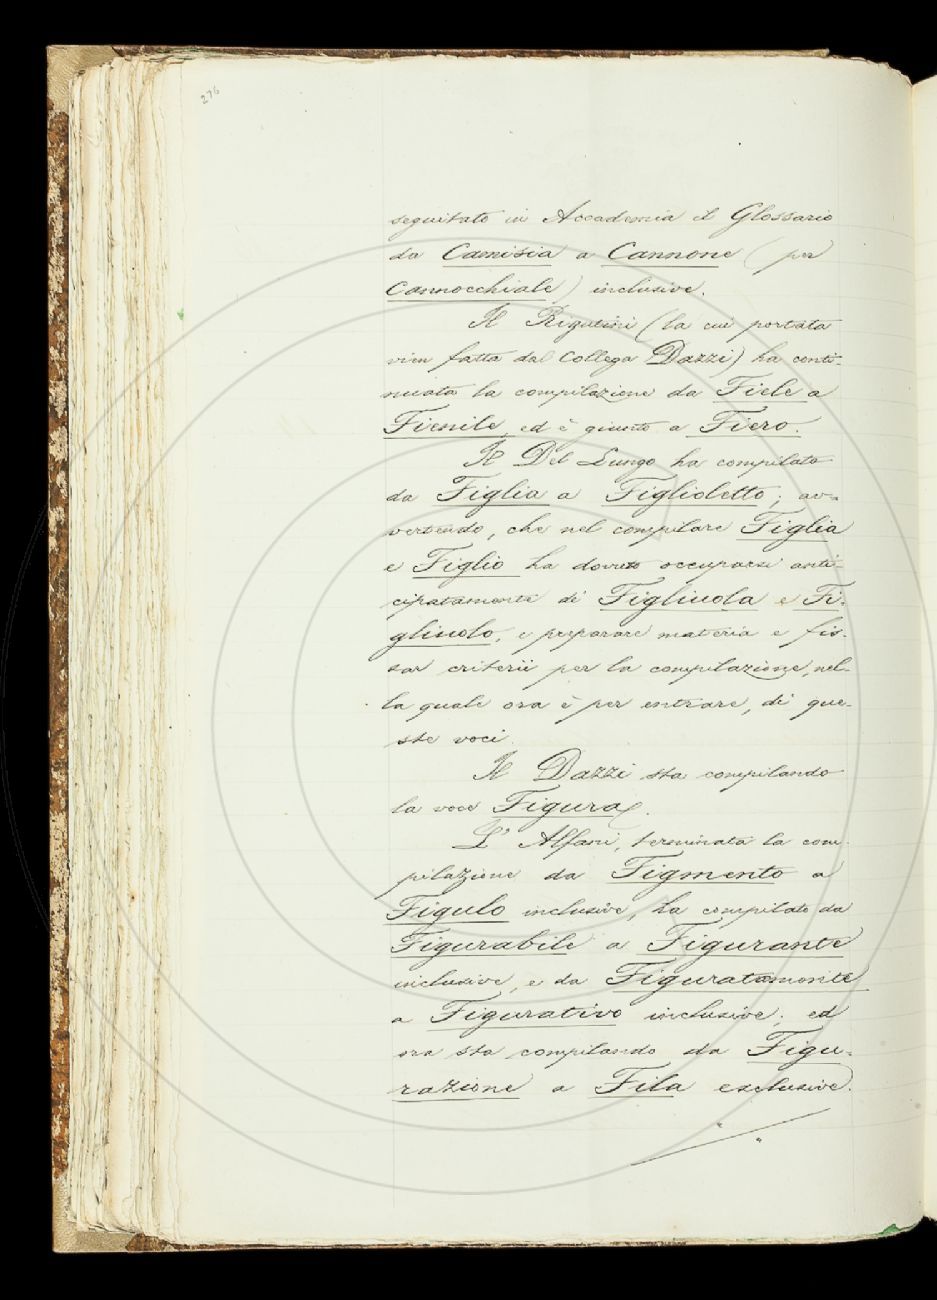 276
seguitato in Accademia il Glossario
da Camisia a Cannone (per
Cannocchiale) inclusive.
Il Rigutini (la cui portata
vien fatta dal Collega Dazzi) ha conti-
nuata la compilazione da Fiele a
Fienile, ed è giunto a Fiero.
Il Del Lungo ha compilato
da Figlia a Figlioletto; av-
vertendo, che nel compilare Figlia
e Figlio ha dovuto occuparsi anti-
cipatamente di Figliuola e Fi-
gliuolo, e preparare materia e fis-
sar criterii per la compilazione, nel-
la quale ora è per entrare, di que-
ste voci.
Il Dazzi sta compilando
la voce Figura.
L' Alfani, terminata la com-
pilazione da Figmento a
Figulo inclusive, ha compilato da
Figurabile a Figurante
inclusive, e da Figuratamente
a Figurativo inclusive; ed
ora sta compilando da Figu-
razione a Fila exclusive.